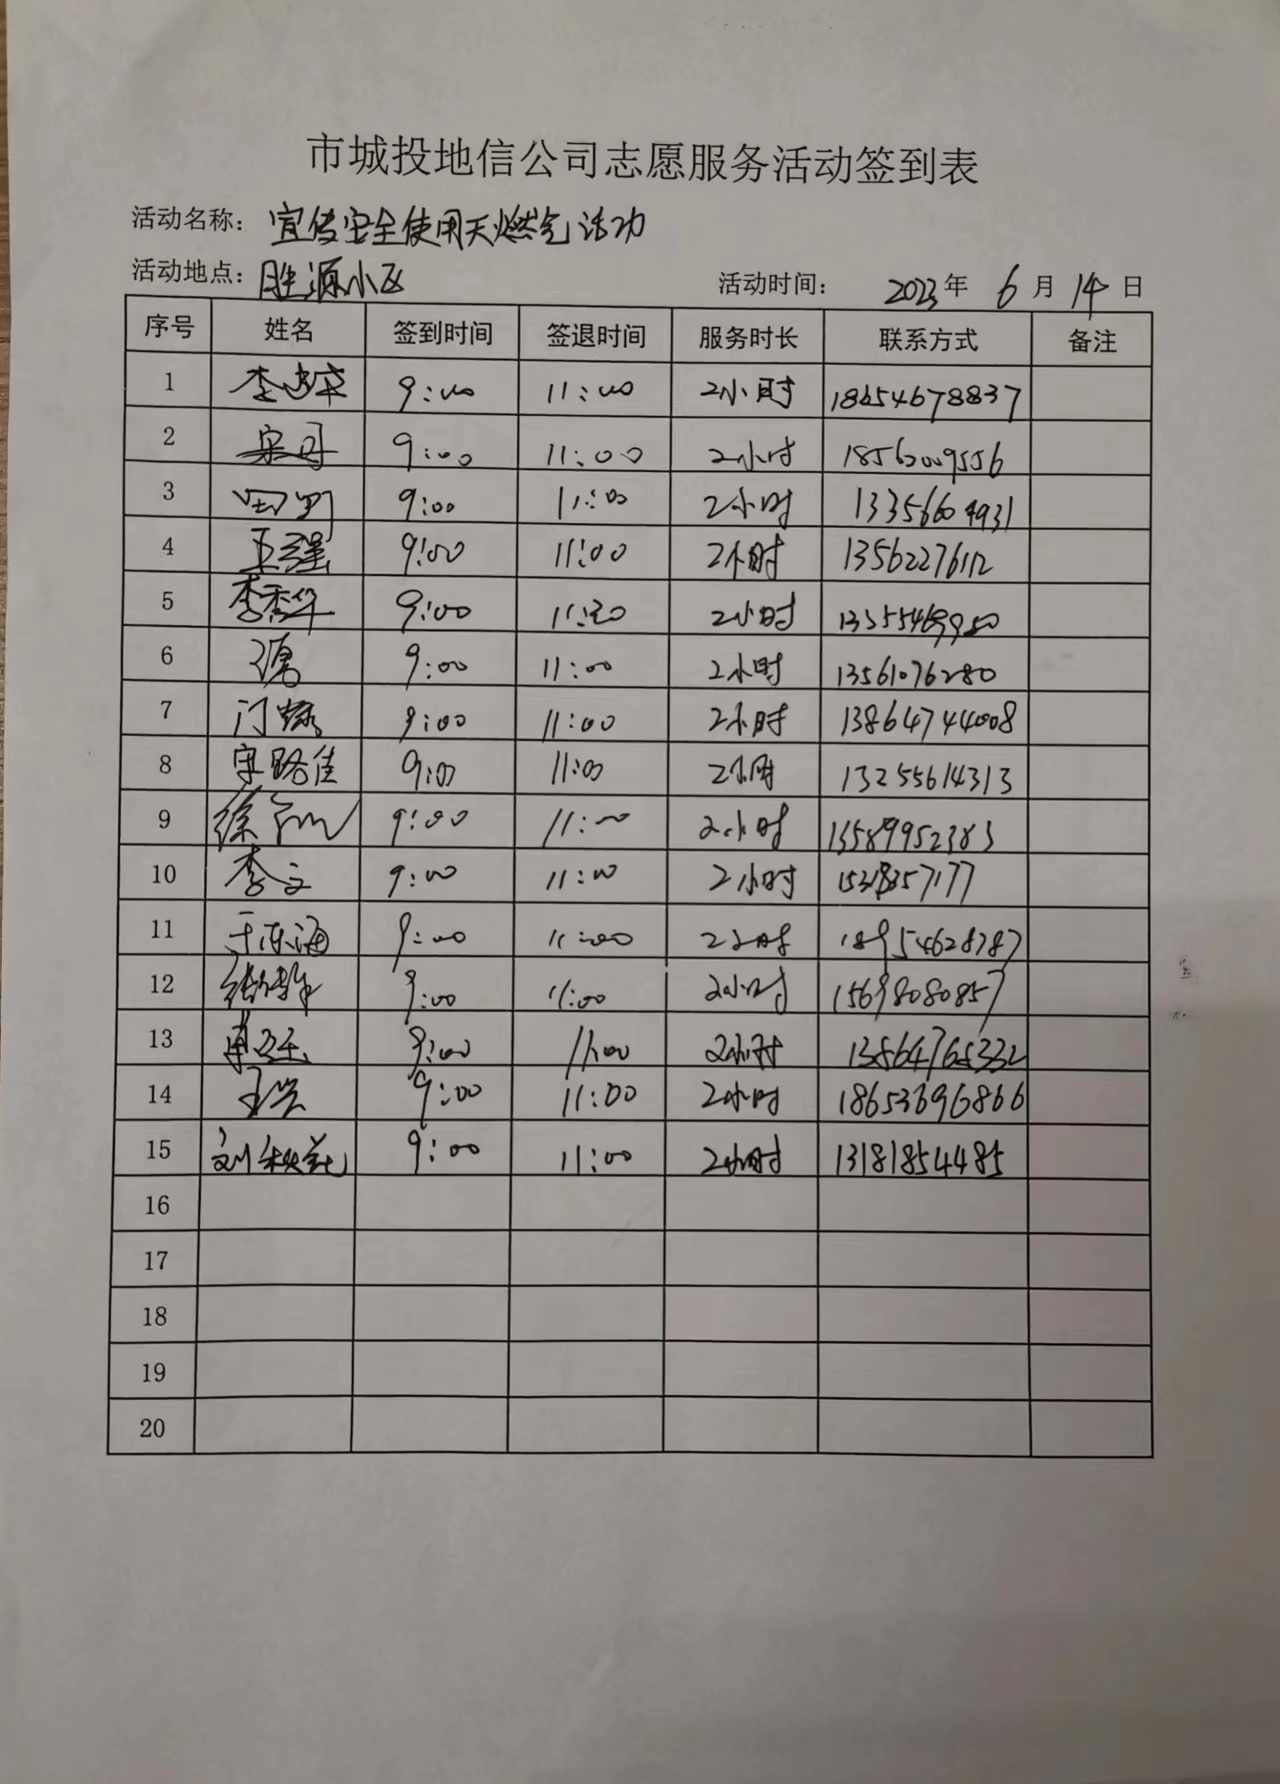 市城投地信公司志愿服务活动签到表
活动名称：宣传安全使用天燃气活动
活动地点：胜源小区 活动时间： 2023年 6月 14日
序号 姓名 签到时间 签退时间 服务时长 联系方式 备注
1 9:00 11:00 2小时 18654678837
2 宋丹 9:00 11:00 2小时 18562009556
3 9:00 11:00 2小时 13356604931
4 王强 9:00 11:00 2小时 13562276112
5 李秀华 9:00 11:30 2小时 13355469950
6 9:00 11:00 2小时 13561076280
7 9:00 11:00 2小时 13864744008
8 宋路佳 9:00 11:00 2小时 13255614313
9 徐 9:00 11:00 2小时 13589952383
10 李文 9:00 11:00 2小时 15318357177
11 于东海 9:00 11:00 2小时 18954628787
12 9:00 11:00 2小时 15698080857
13 9:00 11:00 2小时 13864765332
14 9:00 11:00 2小时 18653696866
15 刘 9:00 11:00 2小时 13181854485
16
17
18
19
20